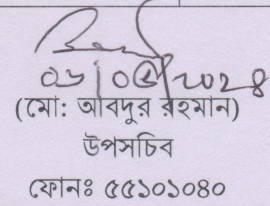 ০৬/০৫/২০২৪
(মো: আবদুর রহমান)
উপসচিব
ফোনঃ ৫৫১০১০৪০